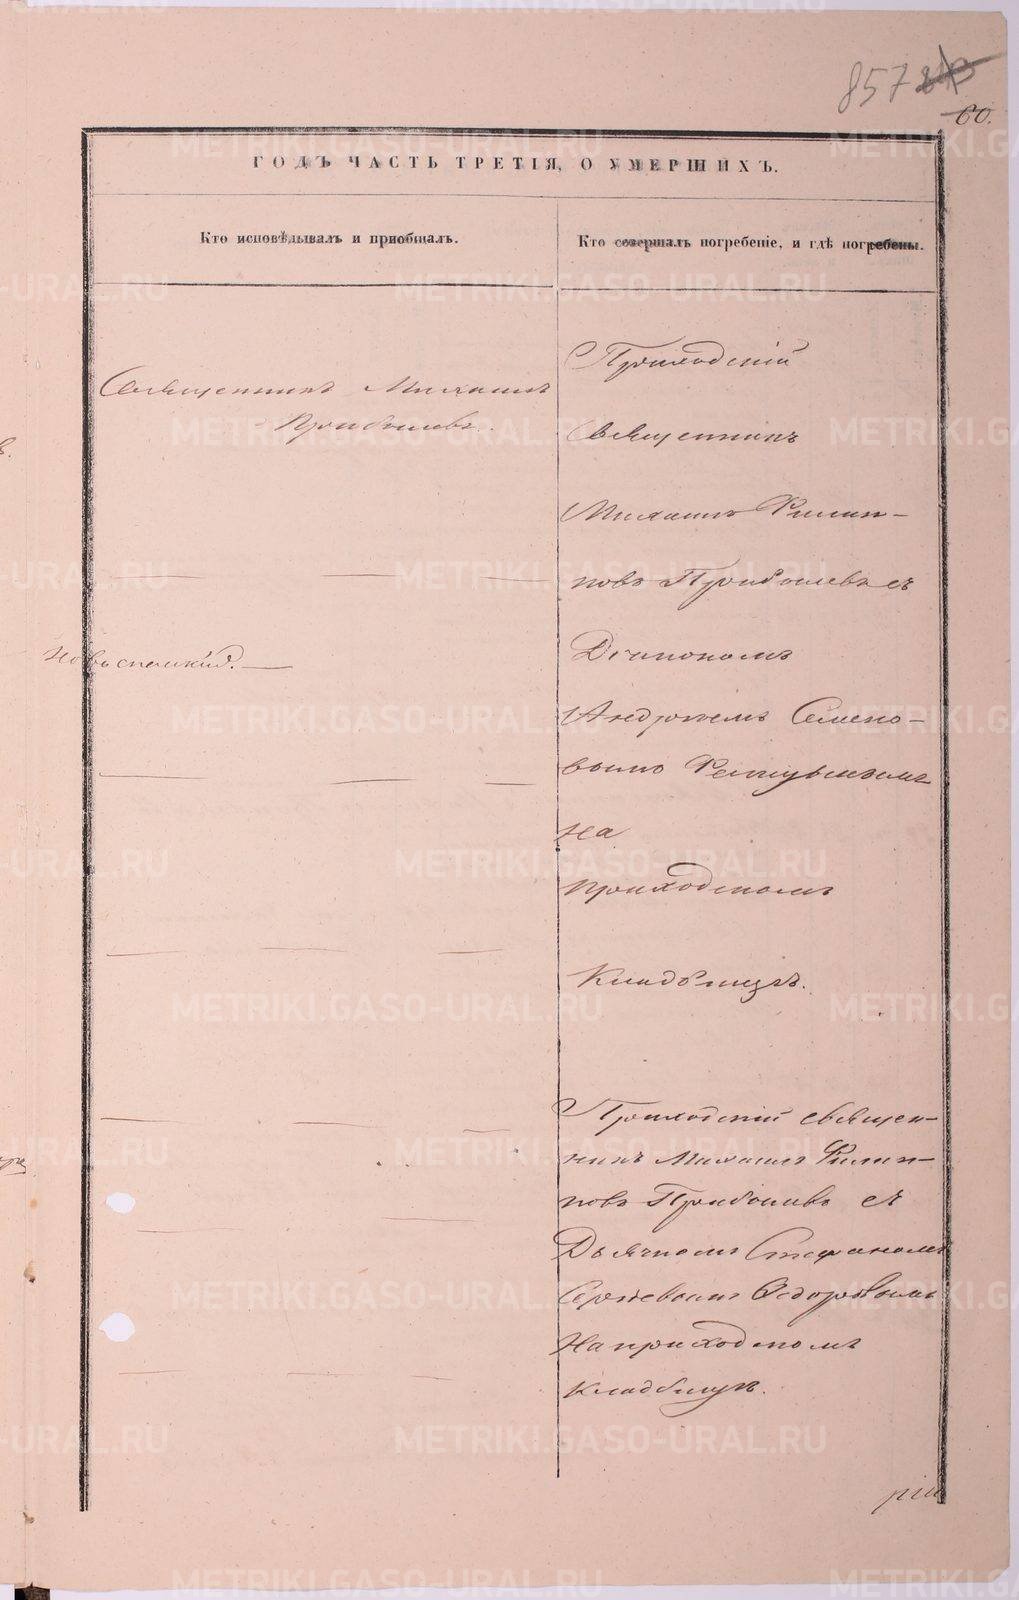 857
60.
ГОДЪ ЧАСТЬ ТРЕТІЯ, О УМЕРШИХЪ.
Кто исповѣдывалъ и пріобщалъ.
Кто совершалъ погребеніе, и гдѣ погребены.
Священникъ Михаилъ
Прибылевъ.
Приходскій
Священникъ
Михаилъ Филип-
повъ Прибылевъ съ
Діакономъ
Андреемъ Семено-
вымъ
на
приходскомъ
Кладбищѣ.
Приходскій священ-
никъ Михаилъ Филип-
повъ Прибылевъ съ
Дьячкомъ Стефаномъ
Сергѣевымъ Ѳедоровымъ
На приходскомъ
кладбищѣ.
METRIKI.GASO-URAL.RU